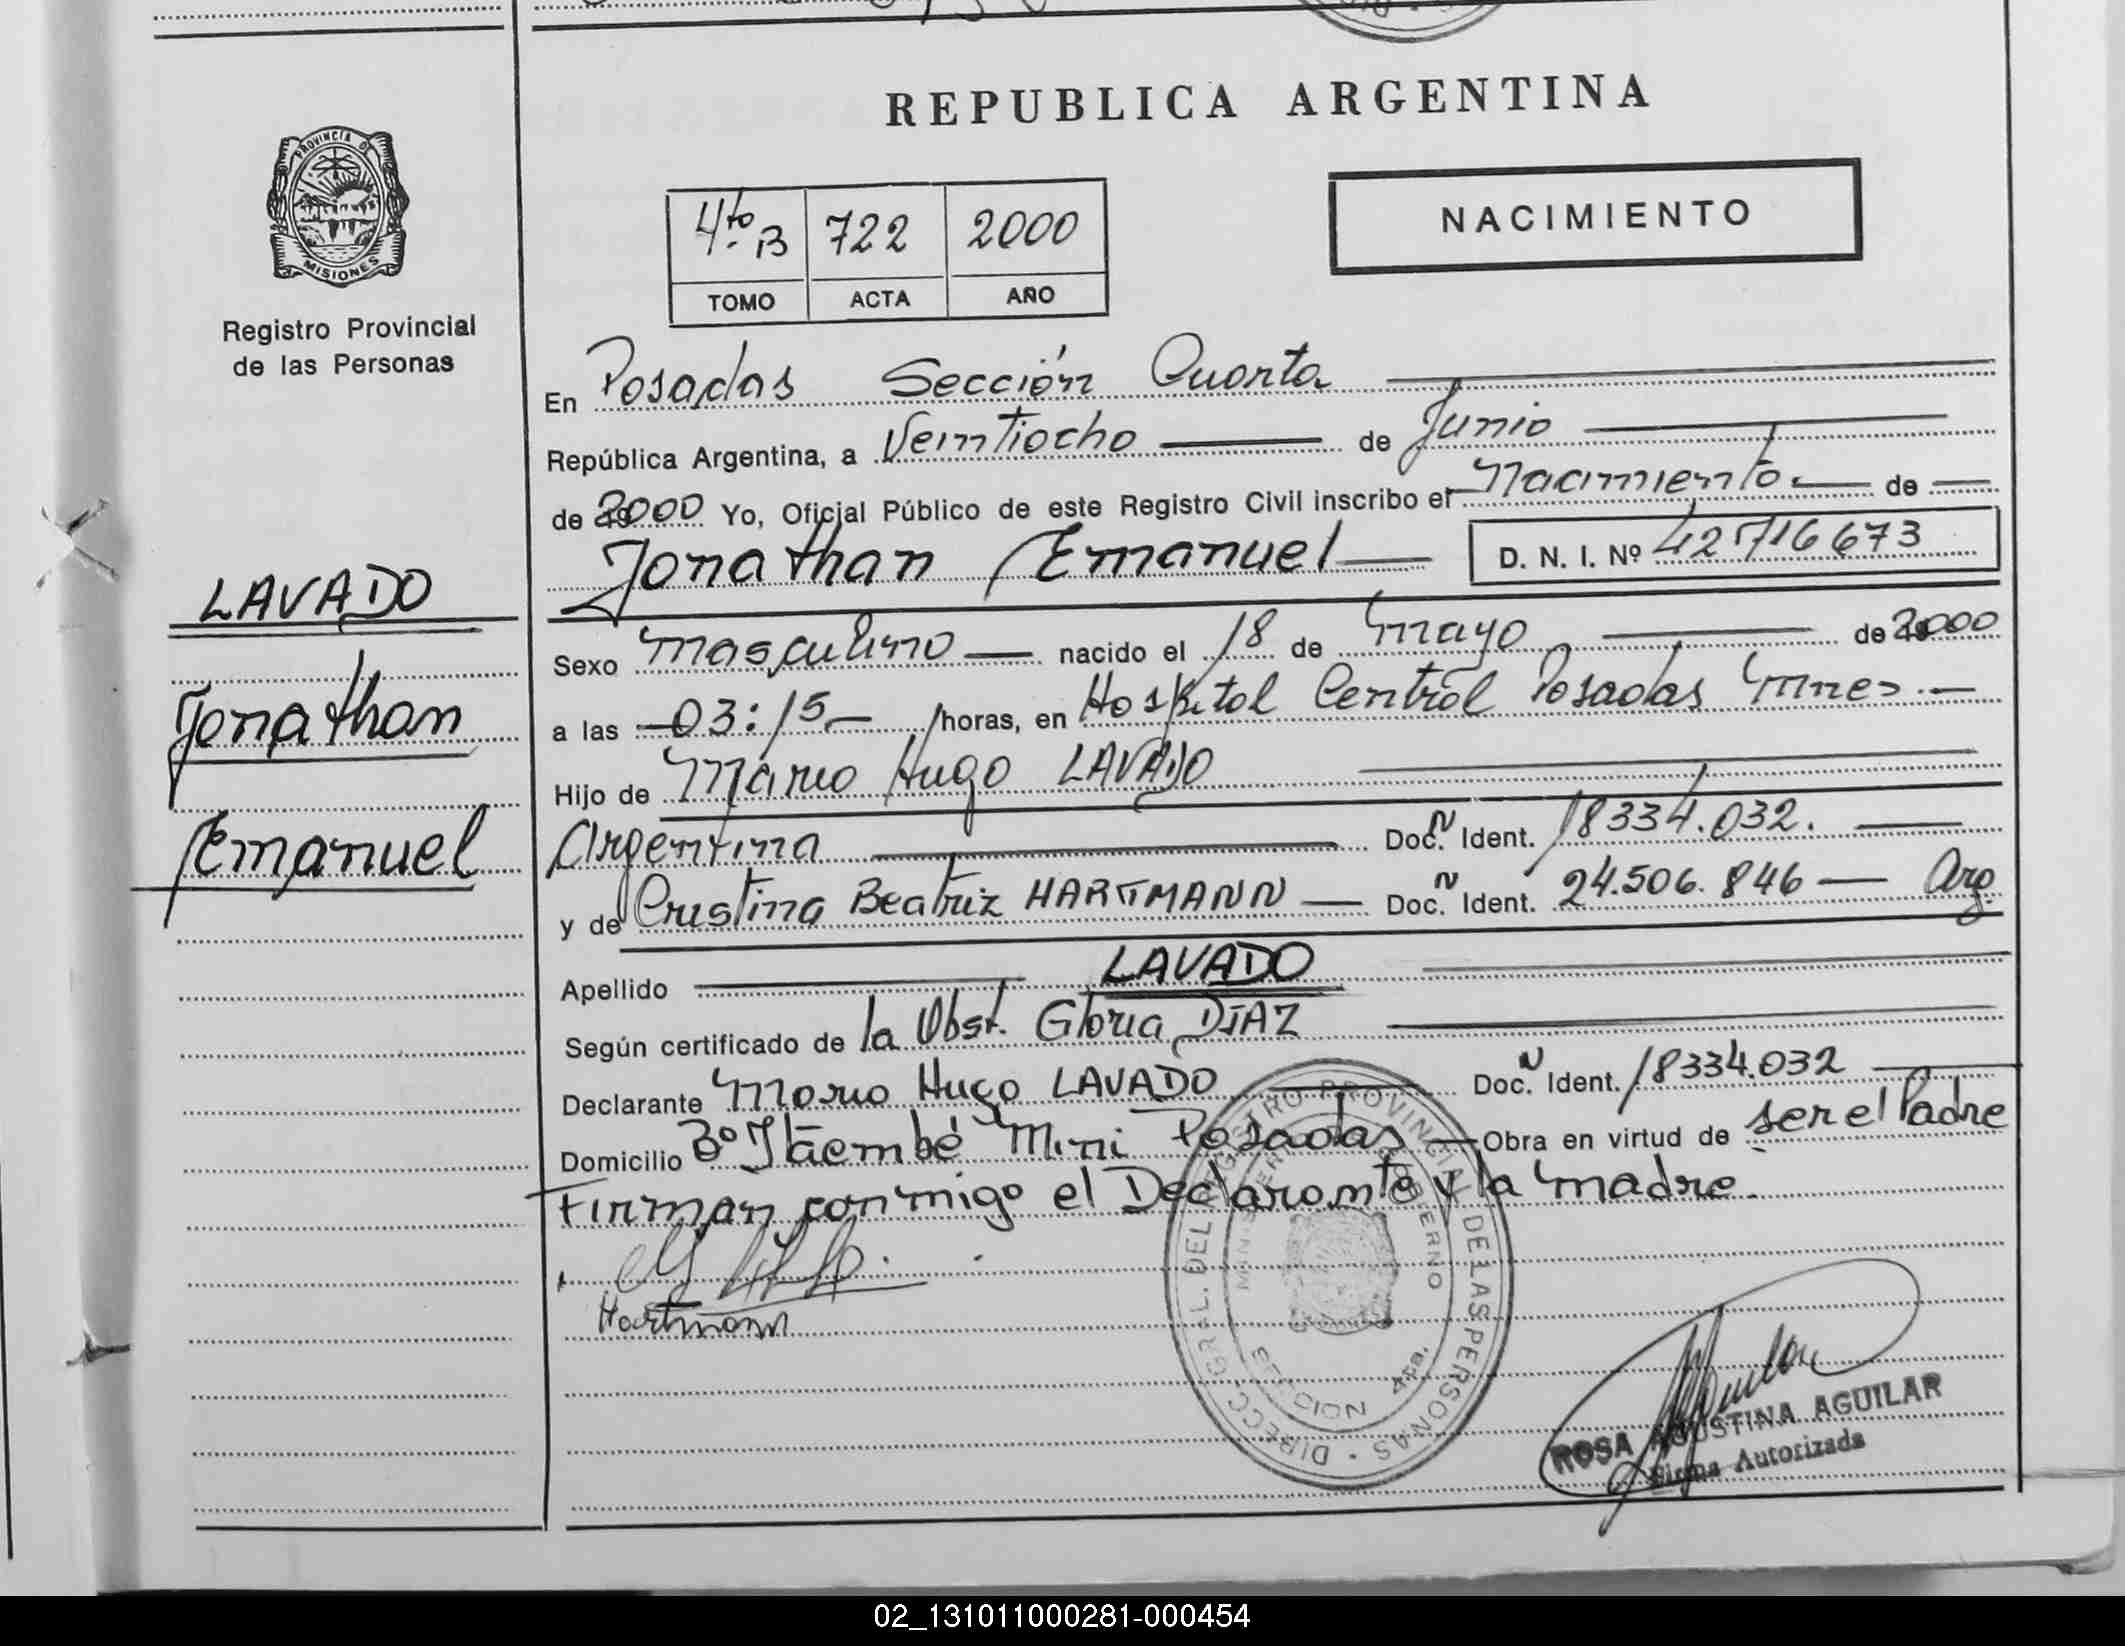 REPUBLICA ARGENTINA
PROVINCIA DE
MISIONES
Registro Provincial
de las Personas
4to B 722 2000
TOMO ACTA AÑO
NACIMIENTO
LAVADO
Jonathan
Emanuel
En Posadas Sección Cuarta
República Argentina, a Veintiocho de Junio
de 2000 Yo, Oficial Público de este Registro Civil inscribo el Nacimiento de
Jonathan Emanuel D. N. I. Nº 42716673
Sexo Masculino nacido el 18 de Mayo de 2000
a las 03:15 horas, en Hospital Central Posadas Mnes
Hijo de Mario Hugo LAVADO
Argentina Doc. N Ident. 18334.032.
y de Cristina Beatriz HARTMANN Doc. N Ident. 24.506.846 Arg
Apellido LAVADO
Según certificado de la Obst. Gloria DIAZ
Declarante Mario Hugo LAVADO Doc. N Ident. 18334.032
Domicilio Bº Itaembé Mini Posadas Obra en virtud de ser el Padre
Firman conmigo el Declarante y la madre.
Hartmann
DIRECC. GRAL. DEL REGISTRO PROVINCIAL DE LAS PERSONAS
4ta.
ROSA AGUSTINA AGUILAR
Firma Autorizada
02_131011000281-000454